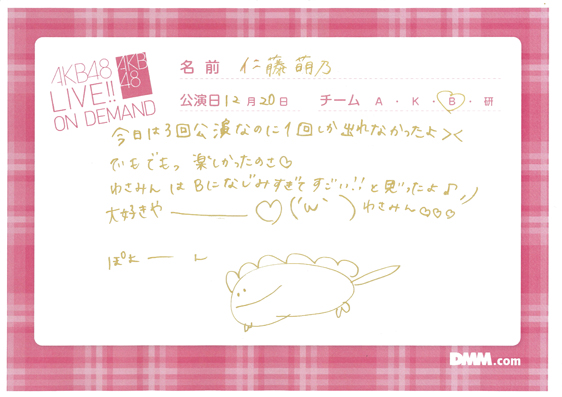 AKB48
LIVE!!
ON DEMAND
AKB
48
名前 仁藤萌乃
公演日 12月20日 チーム A・K・B・研
今日は3回公演なのに1回しか出れなかったよ><
でもでもっ 楽しかったのさ♡
わさみんはBになじみすぎてすごい!!と思ったよ♪
大好きや――♡(´ω｀) わさみん♡♡♡
ぽよ――ん
DMM.com